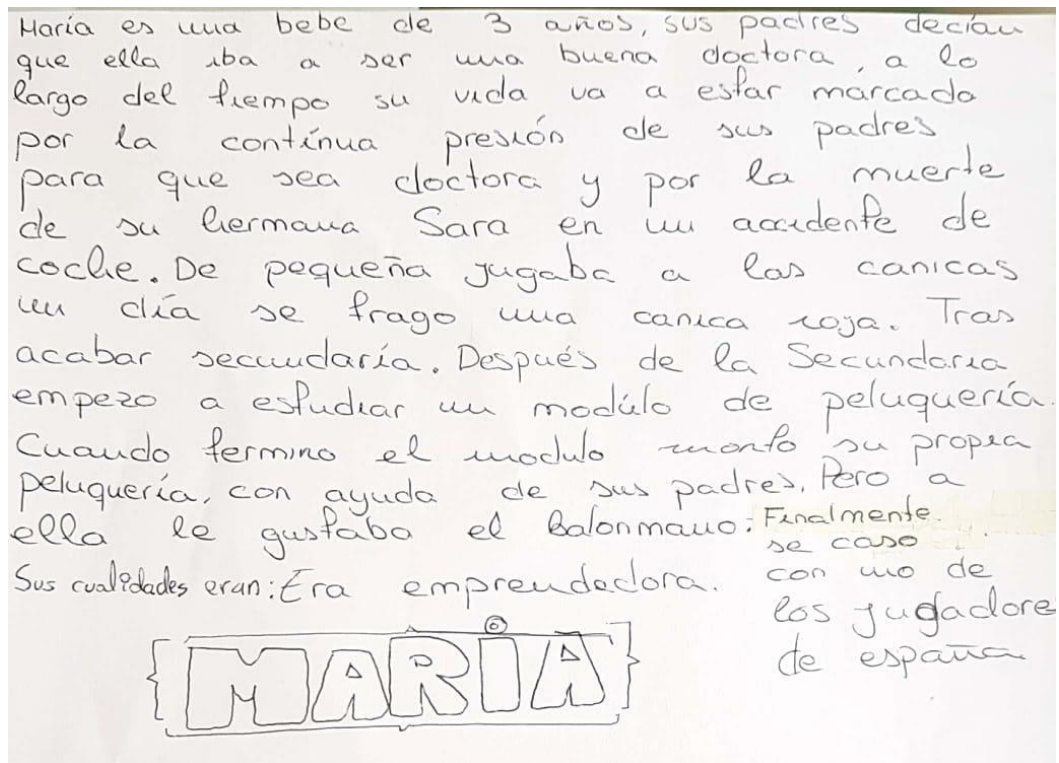 María es una bebe de 3 años, sus padres decían
que ella iba a ser una buena doctora, a lo
largo del tiempo su vida va a estar marcado
por la contínua presión de sus padres
para que sea doctora y por la muerte
de su hermana Sara en un accidente de
coche. De pequeña jugaba a las canicas
un día se trago una canica roja. Tras
acabar secundaría. Después de la Secundaria
empezo a estudiar un modúlo de peluquería.
Cuando termino el modulo monto su propia
peluquería, con ayuda de sus padres. Pero a
ella le gustaba el Balonmano. Finalmente.
se caso
con uno de
los jugadores
de españa
Sus cualidades eran: Era emprendedora.
MARIA